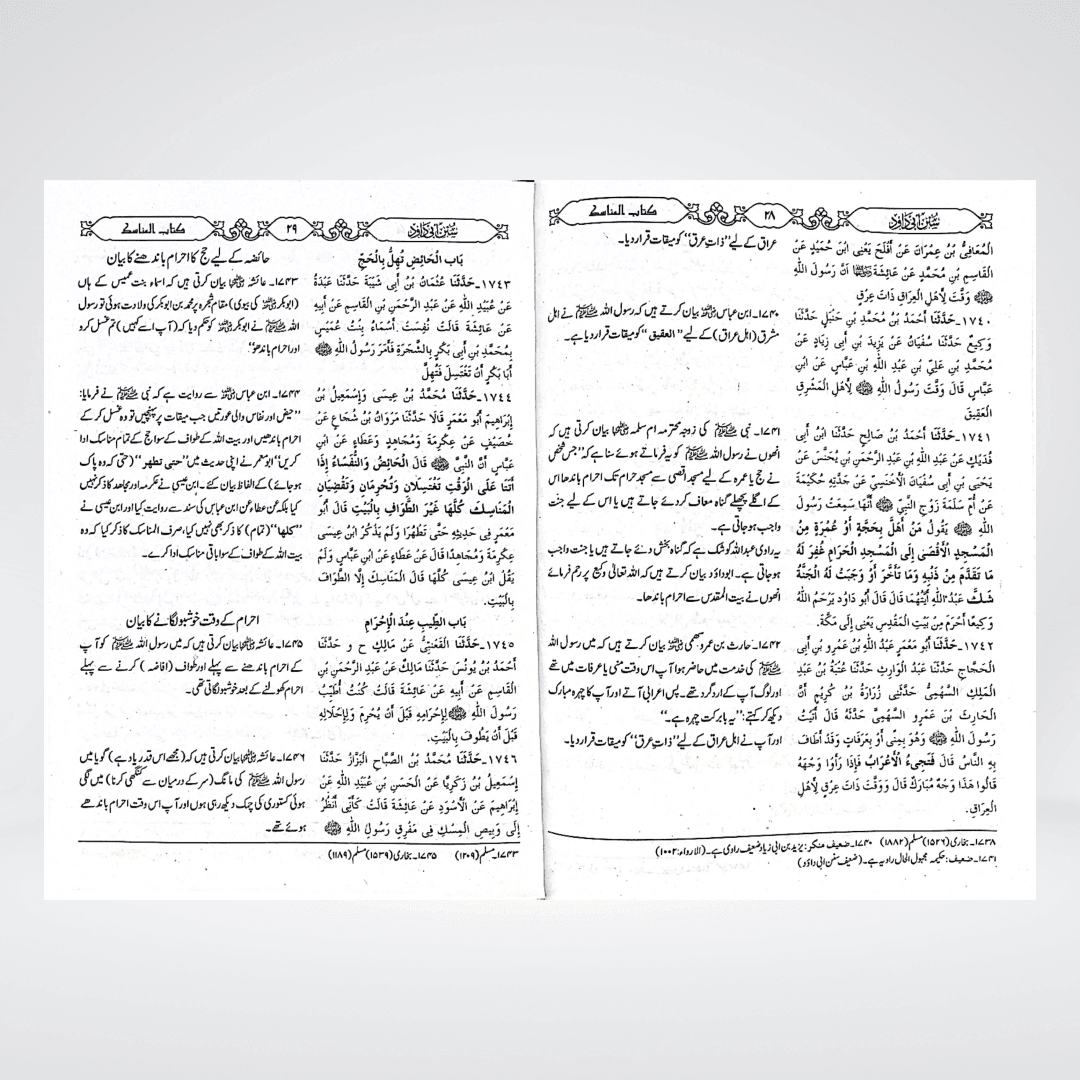 سُنن ابی داؤد
۲۸
کتاب المناسک
الْمُعَافِیُّ بْنُ عِمْرَانَ عَنْ أَفْلَحَ یَعْنِی ابْنَ حُمَیْدٍ عَنْ
الْقَاسِمِ بْنِ مُحَمَّدٍ عَنْ عَائِشَةَ ؓ أَنَّ رَسُولَ اللَّهِ
ﷺ وَقَّتَ لِأَهْلِ الْعِرَاقِ ذَاتَ عِرْقٍ
۱۷٤۰۔حَدَّثَنَا أَحْمَدُ بْنُ مُحَمَّدِ بْنِ حَنْبَلٍ حَدَّثَنَا
وَکِیعٌ حَدَّثَنَا سُفْیَانُ عَنْ یَزِیدَ بْنِ أَبِی زِیَادٍ عَنْ
مُحَمَّدِ بْنِ عَلِیِّ بْنِ عَبْدِ اللَّهِ بْنِ عَبَّاسٍ عَنِ ابْنِ
عَبَّاسٍ قَالَ وَقَّتَ رَسُولُ اللَّهِ ﷺ لِأَهْلِ الْمَشْرِقِ
الْعَقِیقَ
۱۷٤۱۔حَدَّثَنَا أَحْمَدُ بْنُ صَالِحٍ حَدَّثَنَا ابْنُ أَبِی
فُدَیْكٍ عَنْ عَبْدِ اللَّهِ بْنِ عَبْدِ الرَّحْمَنِ بْنِ یُحَنَّسَ عَنْ
یَحْیَی بْنِ أَبِی سُفْیَانَ الْأَخْنَسِیِّ عَنْ جَدَّتِهِ حُکَیْمَةَ
عَنْ أُمِّ سَلَمَةَ زَوْجِ النَّبِیِّ ﷺ أَنَّهَا سَمِعَتْ رَسُولَ
اللَّهِ ﷺ یَقُولُ مَنْ أَهَلَّ بِحَجَّةٍ أَوْ عُمْرَةٍ مِنْ
الْمَسْجِدِ الْأَقْصَی إِلَی الْمَسْجِدِ الْحَرَامِ غُفِرَ لَهُ
مَا تَقَدَّمَ مِنْ ذَنْبِهِ وَمَا تَأَخَّرَ أَوْ وَجَبَتْ لَهُ الْجَنَّةُ
شَكَّ عَبْدُ اللَّهِ أَیَّتُهُمَا قَالَ قَالَ أَبُو دَاوُد یَرْحَمُ اللَّهُ
وَکِیعًا أَحْرَمَ مِنْ بَیْتِ الْمَقْدِسِ یَعْنِی إِلَی مَکَّةَ.
۱۷٤۲۔حَدَّثَنَا أَبُو مَعْمَرٍ عَبْدُ اللَّهِ بْنُ عَمْرِو بْنِ أَبِی
الْحَجَّاجِ حَدَّثَنَا عَبْدُ الْوَارِثِ حَدَّثَنَا عُتْبَةُ بْنُ عَبْدِ
الْمَلِكِ السَّهْمِیُّ حَدَّثَنِی زُرَارَةُ بْنُ کُرَیْمٍ أَنَّ
الْحَارِثَ بْنَ عَمْرٍو السَّهْمِیَّ حَدَّثَهُ قَالَ أَتَیْتُ
رَسُولَ اللَّهِ ﷺ وَهُوَ بِمِنًی أَوْ بِعَرَفَاتٍ وَقَدْ أَطَافَ
بِهِ النَّاسُ قَالَ فَتَجِیءُ الْأَعْرَابُ فَإِذَا رَأَوْا وَجْهَهُ
قَالُوا هَذَا وَجْهٌ مُبَارَكٌ قَالَ وَوَقَّتَ ذَاتَ عِرْقٍ لِأَهْلِ
الْعِرَاقِ.
عراق کے لیے ”ذات عرق“ کو میقات قرار دیا۔
۱۷۴۰۔ ابن عباس ؓ بیان کرتے ہیں کہ رسول اللہ ﷺ نے اہل
مشرق (اہل عراق) کے لیے ” العقیق“ کو میقات قرار دیا ہے۔
۱۷۴۱۔ نبی ﷺ کی زوجہ محترمہ ام سلمہ ؓ بیان کرتی ہیں کہ
انھوں نے رسول اللہ ﷺ کو یہ فرماتے ہوئے سنا ہے کہ ”جس شخص
نے حج یا عمرہ کے لیے مسجد اقصیٰ سے مسجد حرام تک احرام باندھا اس
کے اگلے پچھلے گناہ معاف کر دئے جاتے ہیں یا اس کے لیے جنت
واجب ہو جاتی ہے۔
یہ راوی عبداللہ کو شک ہے کہ گناہ بخش دئے جاتے ہیں یا جنت واجب
ہو جاتی ہے۔ ابوداؤد بیان کرتے ہیں کہ اللہ تعالیٰ وکیع پر رحم فرمائے
انھوں نے بیت المقدس سے احرام باندھا۔
۱۷۴۲۔ حارث بن عمرو سھمی ؓ بیان کرتے ہیں کہ میں رسول اللہ
ﷺ کی خدمت میں حاضر ہوا آپ اس وقت منیٰ یا عرفات میں تھے
اور لوگ آپ کے ارد گرد تھے۔ پس اعرابی آتے اور آپ کا چہرہ مبارک
دیکھ کر کہتے: ”یہ بابرکت چہرہ ہے۔“
اور آپ نے اہل عراق کے لیے ”ذات عرق“ کو میقات قرار دیا۔
۱۷۳۸۔ بخاری (۱۵۲۶) مسلم (۱۸۸۲) ۱۷۴۰۔ ضعیف منکر: یزید بن ابی زیاد ضعیف راوی ہے۔ (الارواء: ۱۰۰۲)
۱۷۴۱۔ ضعیف: حکیمہ مجہول الحال راویہ ہے۔ (ضعیف سنن ابی داؤد)
سُنن ابی داؤد
۲۹
کتاب المناسک
بَاب الْحَائِضِ تُهِلُّ بِالْحَجِّ
۱۷٤۳۔حَدَّثَنَا عُثْمَانُ بْنُ أَبِی شَیْبَةَ حَدَّثَنَا عَبْدَةُ
عَنْ عُبَیْدِ اللَّهِ عَنْ عَبْدِ الرَّحْمَنِ بْنِ الْقَاسِمِ عَنْ أَبِیهِ
عَنْ عَائِشَةَ قَالَتْ نُفِسَتْ أَسْمَاءُ بِنْتُ عُمَیْسٍ
بِمُحَمَّدِ بْنِ أَبِی بَکْرٍ بِالشَّجَرَةِ فَأَمَرَ رَسُولُ اللَّهِ ﷺ
أَبَا بَکْرٍ أَنْ تَغْتَسِلَ فَتُهِلَّ
۱۷٤٤۔حَدَّثَنَا مُحَمَّدُ بْنُ عِیسَی وَإِسْمَعِیلُ بْنُ
إِبْرَاهِیمَ أَبُو مَعْمَرٍ قَالَا حَدَّثَنَا مَرْوَانُ بْنُ شُجَاعٍ عَنْ
خُصَیْفٍ عَنْ عِکْرِمَةَ وَمُجَاهِدٍ وَعَطَاءٍ عَنِ ابْنِ
عَبَّاسٍ أَنَّ النَّبِیَّ ﷺ قَالَ الْحَائِضُ وَالنُّفَسَاءُ إِذَا
أَتَتَا عَلَی الْوَقْتِ تَغْتَسِلَانِ وَتُحْرِمَانِ وَتَقْضِیَانِ
الْمَنَاسِكَ کُلَّهَا غَیْرَ الطَّوَافِ بِالْبَیْتِ قَالَ أَبُو
مَعْمَرٍ فِی حَدِیثِهِ حَتَّی تَطْهُرَا وَلَمْ یَذْکُرِ ابْنُ عِیسَی
عِکْرِمَةَ وَمُجَاهِدًا قَالَ عَنْ عَطَاءٍ عَنِ ابْنِ عَبَّاسٍ وَلَمْ
یَقُلْ ابْنُ عِیسَی کُلَّهَا قَالَ الْمَنَاسِكَ إِلَّا الطَّوَافَ
بِالْبَیْتِ.
بَاب الطِّیبِ عِنْدَ الْإِحْرَامِ
۱۷٤٥۔حَدَّثَنَا الْقَعْنَبِیُّ عَنْ مَالِكٍ ح و حَدَّثَنَا
أَحْمَدُ بْنُ یُونُسَ حَدَّثَنَا مَالِكٌ عَنْ عَبْدِ الرَّحْمَنِ بْنِ
الْقَاسِمِ عَنْ أَبِیهِ عَنْ عَائِشَةَ قَالَتْ کُنْتُ أُطَیِّبُ
رَسُولَ اللَّهِ ﷺ لِإِحْرَامِهِ قَبْلَ أَنْ یُحْرِمَ وَلِإِحْلَالِهِ
قَبْلَ أَنْ یَطُوفَ بِالْبَیْتِ.
۱۷٤٦۔حَدَّثَنَا مُحَمَّدُ بْنُ الصَّبَّاحِ الْبَزَّازُ حَدَّثَنَا
إِسْمَعِیلُ بْنُ زَکَرِیَّا عَنِ الْحَسَنِ بْنِ عُبَیْدِ اللَّهِ عَنْ
إِبْرَاهِیمَ عَنِ الْأَسْوَدِ عَنْ عَائِشَةَ قَالَتْ کَأَنِّی أَنْظُرُ
إِلَی وَبِیصِ الْمِسْكِ فِی مَفْرِقِ رَسُولِ اللَّهِ ﷺ
حائضہ کے لیے حج کا احرام باندھنے کا بیان
۱۷۴۳۔ عائشہ ؓ بیان کرتی ہیں کہ اسماء بنت عمیس کے ہاں
(ابوبکر ؓ کی بیوی) مقام شجرہ پر محمد بن ابوبکر کی ولادت ہوئی تو رسول
اللہ ﷺ نے ابوبکر ؓ کو حکم دیا کہ (آپ اسے کہیں) تم غسل کرو
اور احرام باندھو“۔
۱۷۴۴۔ ابن عباس ؓ سے روایت ہے کہ نبی ﷺ نے فرمایا:
”حیض اور نفاس والی عورتیں جب میقات پر پہنچیں تو وہ غسل کر کے
احرام باندھیں اور بیت اللہ کے طواف کے سوا حج کے تمام مناسک ادا
کریں“ ابومعمر نے اپنی حدیث میں ”حتی تطهر“ (حتی کہ وہ پاک
ہو جائے) کے الفاظ بیان کئے۔ ابن عیسیٰ نے عکرمہ اور مجاہد کا ذکر نہیں
کیا بلکہ عن عطاء عن ابن عباس کی سند سے روایت کیا اور ابن عیسیٰ نے
”کلها“ (تمام) کا ذکر بھی نہیں کیا، صرف المناسک کا ذکر کیا کہ وہ
بیت اللہ کے طواف کے سوا باقی مناسک ادا کرے۔
احرام کے وقت خوشبو لگانے کا بیان
۱۷۴۵۔ عائشہ ؓ بیان کرتی ہیں کہ میں رسول اللہ ﷺ کو آپ
کے احرام باندھنے سے پہلے اور طواف (افاضہ) کرنے سے پہلے
احرام کھولنے کے بعد خوشبو لگاتی تھی۔
۱۷۴۶۔ عائشہ ؓ بیان کرتی ہیں کہ (مجھے اس قدر یاد ہے) گویا میں
رسول اللہ ﷺ کی مانگ (سر کے درمیان سے کنگھی کرنا) میں لگی
ہوئی کستوری کی چمک دیکھ رہی ہوں اور آپ اس وقت احرام باندھے
ہوئے تھے۔
۱۷۴۳۔ مسلم (۱۲۰۹) ۱۷۴۵۔ بخاری (۱۵۳۹) مسلم (۱۱۸۹)